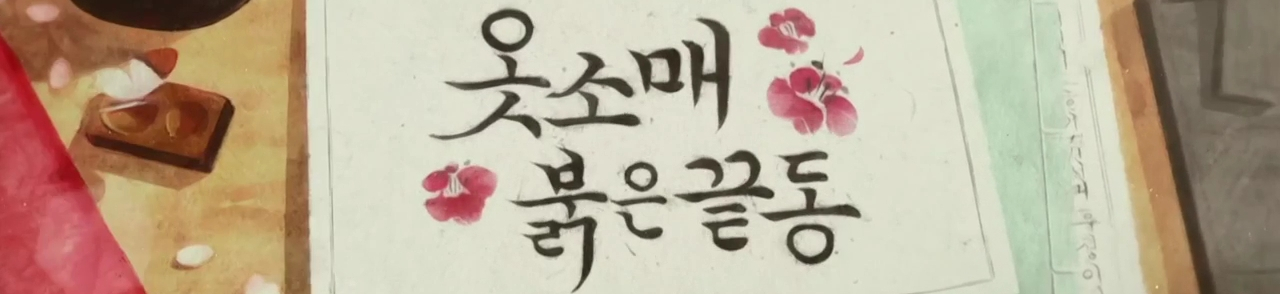 옷소매
붉은 끝동